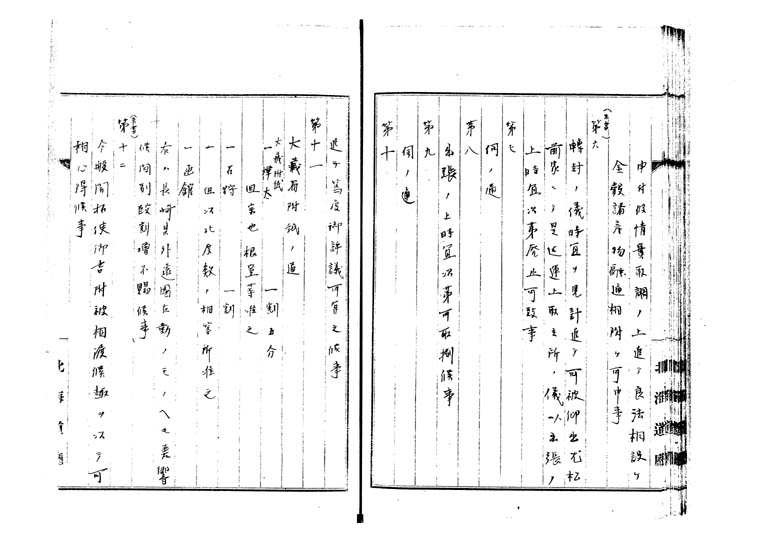 中付役情景取調ノ上追テ良法相設ケ
金穀諸産物融通相附ケ可申事
(朱書)
第六
轉封ノ儀時宜ヲ見計追テ可被仰出尤松
前家ヽヽ是迄運上取立所ノ儀ハ出張ノ
上時宜次第廃止可致事
第七
伺ノ通
第八
出張ノ上時宜次第可取捌候事
第九
伺ノ通
第十
追テ篤度御評議可有之候事
第十一
大蔵省附紙ノ通
大蔵附紙
一樺太 一割五分
但宗也根室等准之
一石狩 一割
一但以北度数ノ相當所准之
一函館
右ハ長崎県外遠國在勤ノモノヘモ差響
候間別段割増不賜候事
(朱書)
第十二
今般開拓使御書附被相渡候趣ヲ以テ可
相心得候事
北海道